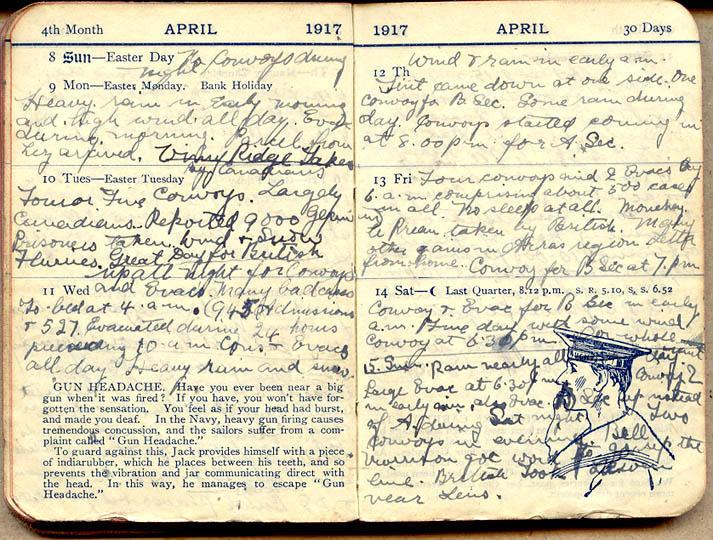 4th Month APRIL 1917
8 Sun—Easter Day No Convoys during
night
9 Mon—Easter Monday. Bank Holiday
Heavy rain in Early morning
and high wind all day. Evac
during morning. Parcel from
Liz arrived. Vimy Ridge Taken
by Canadians
10 Tues—Easter Tuesday
Four or Five Convoys. Largely
Canadians. Reported 9000 German
Prisoners taken. Wind & Snow
Flurries. Great Day for British
up all night for Convoys
11 Wed and Evacs. Many bad cases
To bed at 4 a.m. (945 Admissions
& 527 Evacuated during 24 hours
preceeding 10 a.m. Con. & Evacs
all day. Heavy rain and snow.
GUN HEADACHE. Have you ever been near a big
gun when it was fired? If you have, you won't have for-
gotten the sensation. You feel as if your head had burst,
and made you deaf. In the Navy, heavy gun firing causes
tremendous concussion, and the sailors suffer from a com-
plaint called "Gun Headache."
To guard against this, Jack provides himself with a piece
of indiarubber, which he places between his teeth, and so
prevents the vibration and jar communicating direct with
the head. In this way, he manages to escape "Gun
Headache."
1917 APRIL 30 Days
Wind & rain in early a.m.
12 Th
Tent came down at one side. One
convoy for B Sec. Some rain during
day. Convoys started coming in
at 8.00 p.m. for A. Sec.
13 Fri Four convoys and 2 Evacs by
6 a.m. comprising about 500 cases
in all. No sleep at all. Monchey
le Preux taken by British. Many
other gains in Arras region
from home. Convoy for B Sec at 7 p.m
14 Sat—☾ Last Quarter, 8.12 p.m. S. R. 5.10, S. S. 6.52
Convoy & Evac for B Sec in early
a.m. Fine day with some wind
Convoy at 6.30 p.m. whole
15. Sun. Rain nearly all
Large Evac at 6.30 Convoy
in early am, also Evac. Sec up
of A during Sat night. Two
Convoys in evening. Bell
got work to the
line. British took
near Lens.